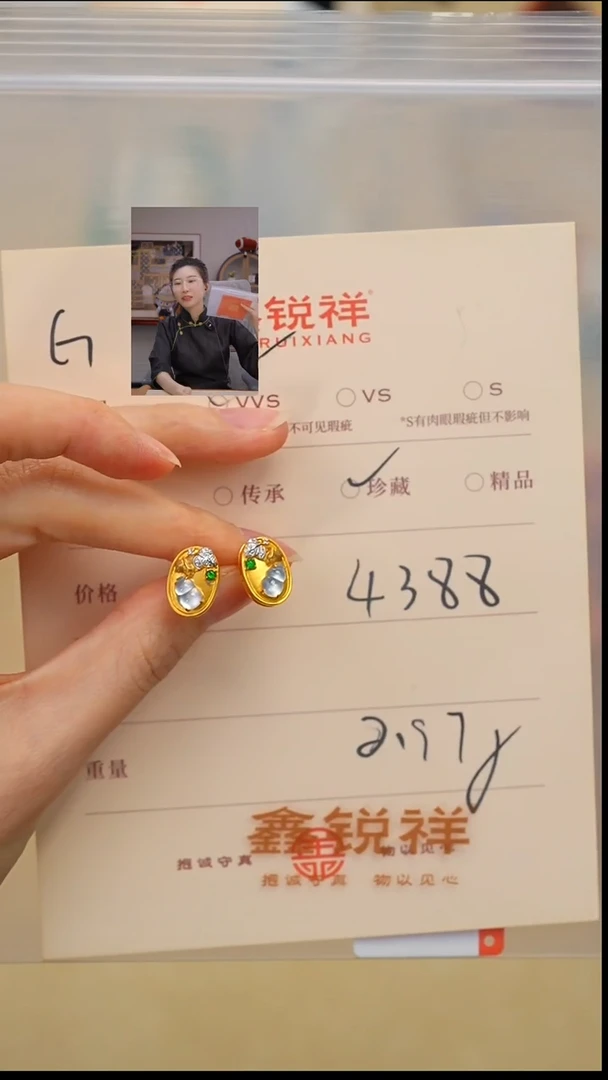 锐祥
RUIXIANG
G
VVS VS S
不可见瑕疵 *S有肉眼瑕疵但不影响
传承 珍藏 精品
价格 4388
重量 2.97g
鑫锐祥
抱诚守真
抱诚守真 物以见心